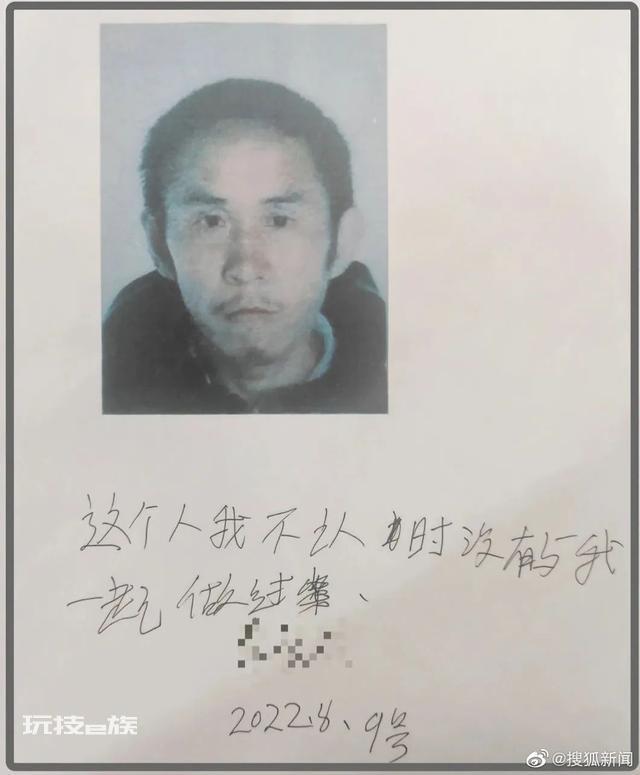 这个人我不认时没有与我
一起做过案、
2022.8.9号
玩技e族
@搜狐新闻